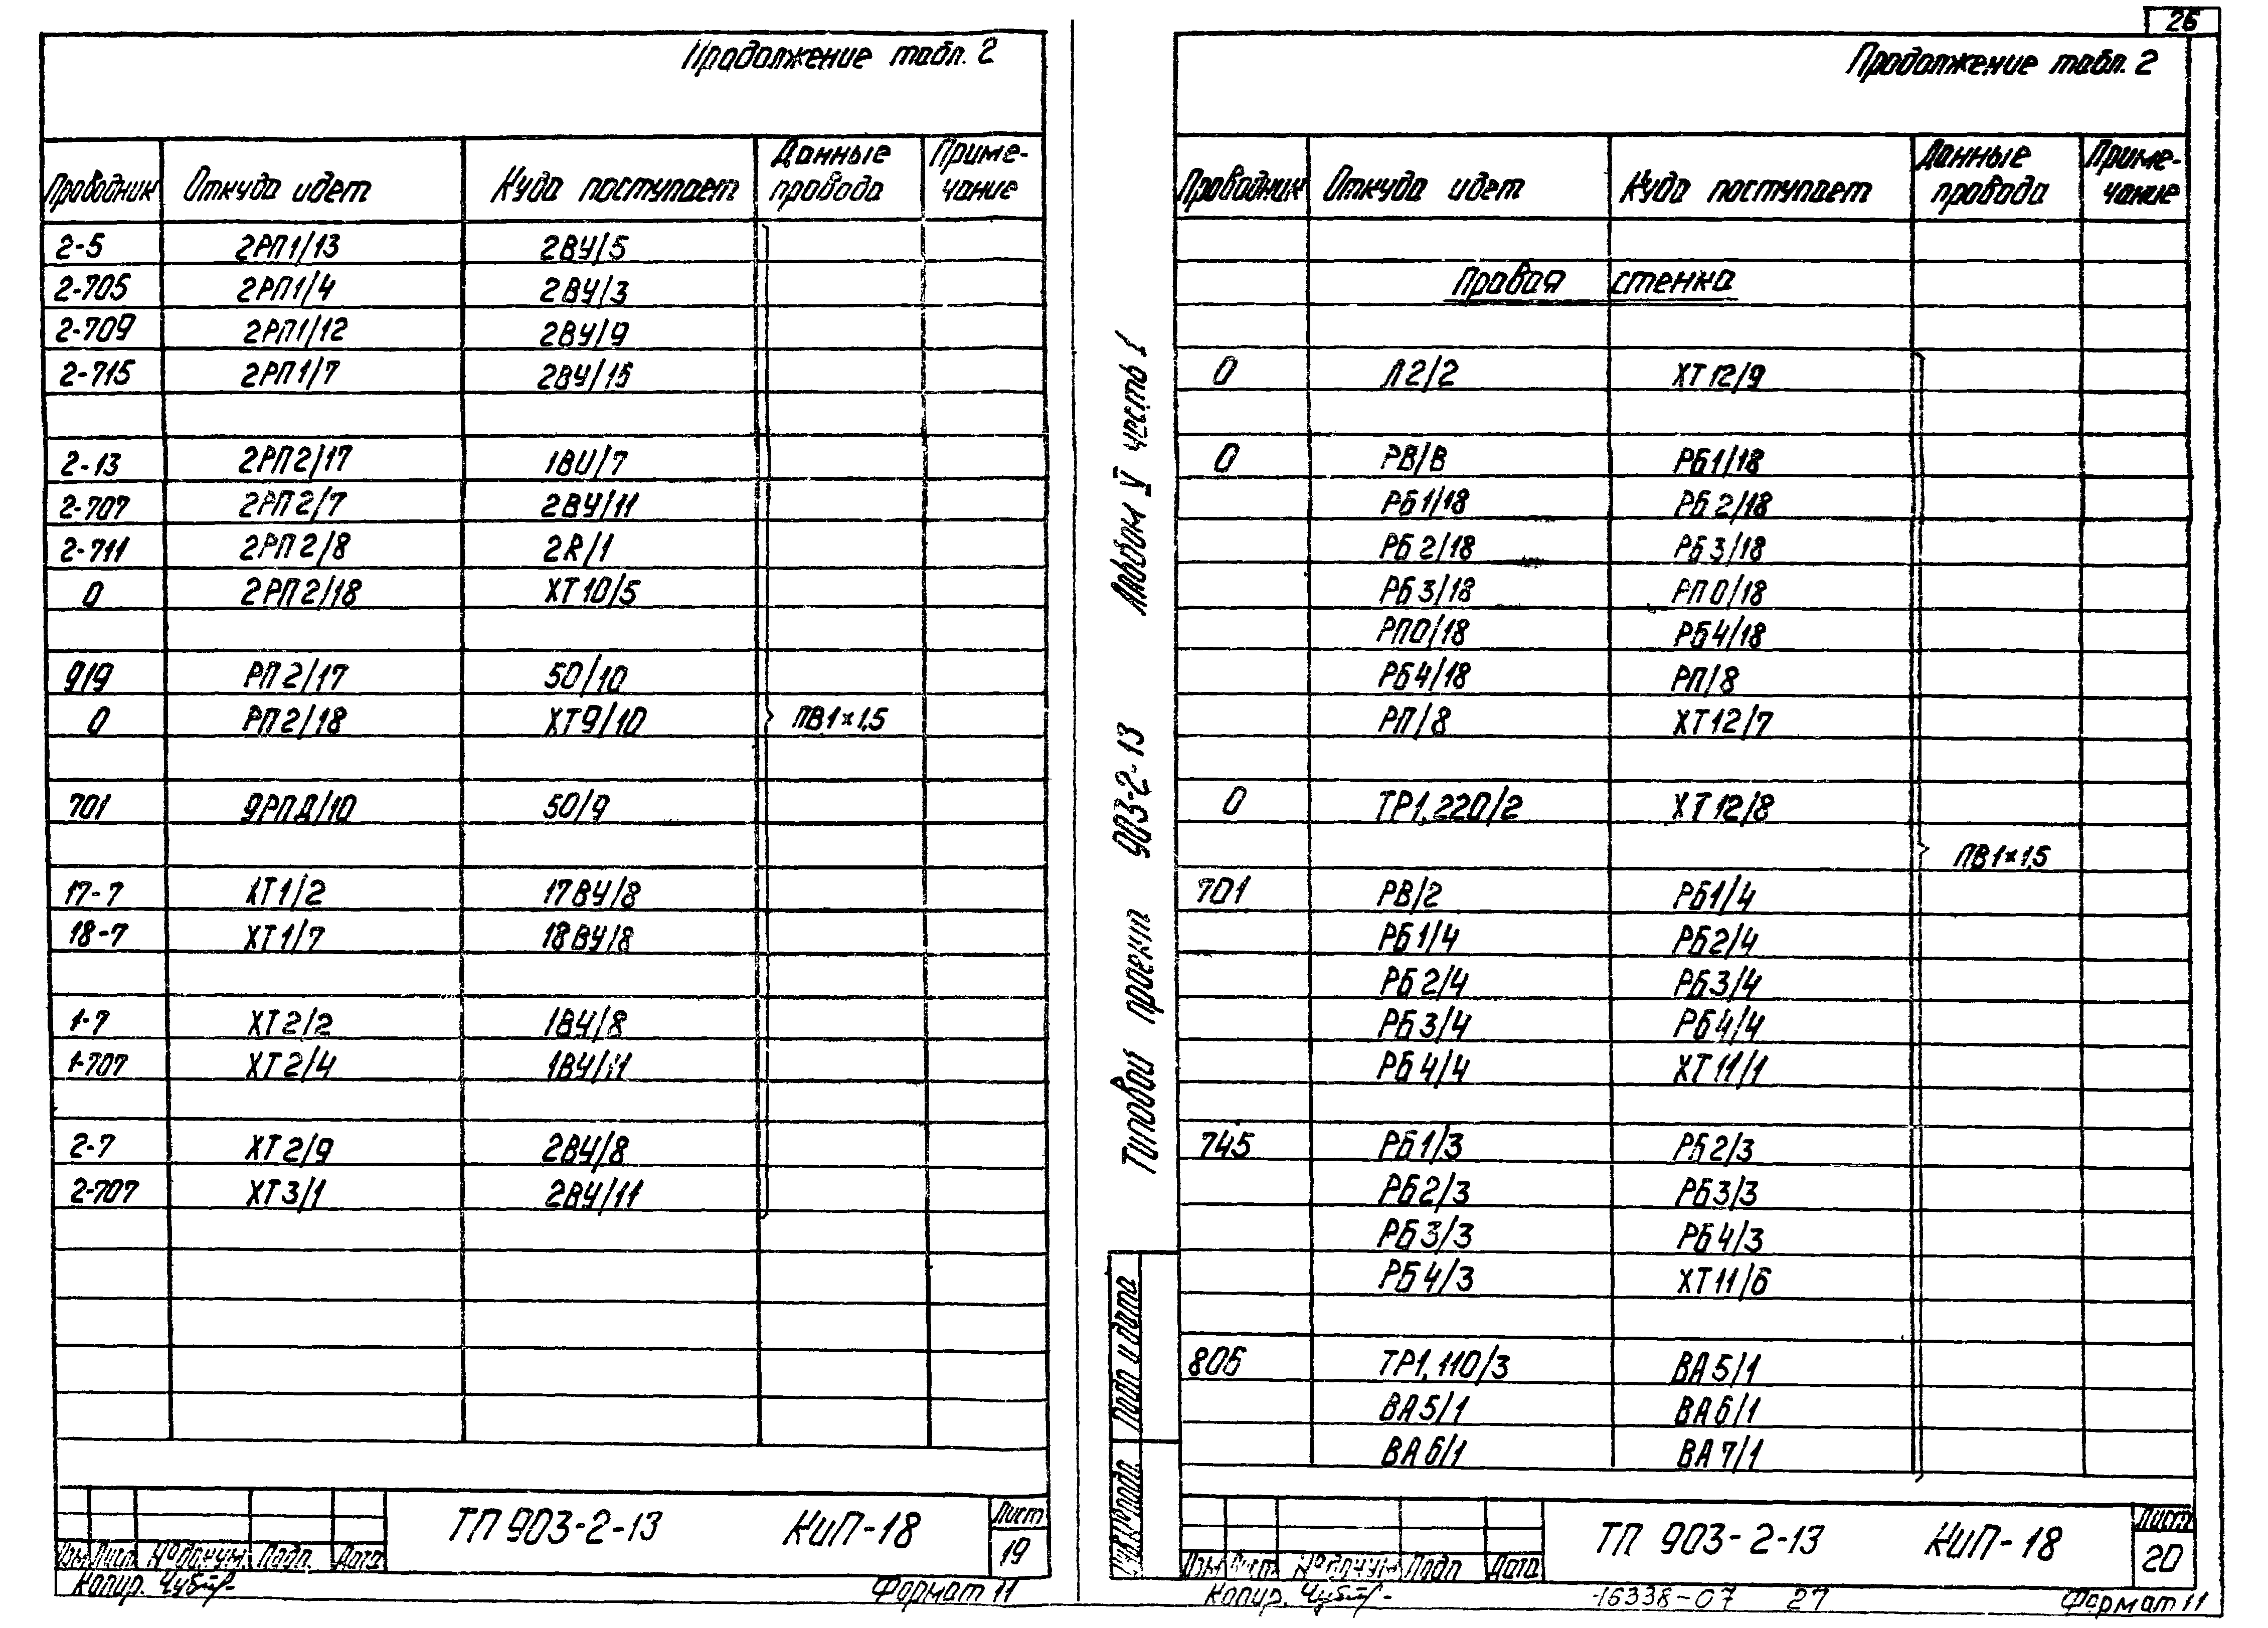 Продолжение табл. 2
Проводник Откуда идет Куда поступает Данные провода Примечание
2-5 2РП1/13 2ВУ/5
2-705 2РП1/4 2ВУ/3
2-709 2РП1/12 2ВУ/9
2-715 2РП1/7 2ВУ/15
2-13 2РП2/17 1ВU/7
2-707 2РП2/7 2ВУ/11
2-711 2РП2/8 2R/1
0 2РП2/18 ХТ10/5
919 РП2/17 50/10
0 РП2/18 ХТ9/10 ПВ1×1,5
701 9РПД/10 50/9
17-7 ХТ1/2 17ВУ/8
18-7 ХТ1/7 18ВУ/8
1-7 ХТ2/2 1ВУ/8
1-707 ХТ2/4 1ВУ/11
2-7 ХТ2/9 2ВУ/8
2-707 ХТ3/1 2ВУ/11
ТП 903-2-13 КиП-18 Лист 19
Изм. Лист № докум. Подп. Дата
Копир. Формат 11
26
Продолжение табл. 2
Проводник Откуда идет Куда поступает Данные провода Примечание
Правая стенка
0 Л2/2 ХТ12/9
0 РВ/В РБ1/18
РБ1/18 РБ2/18
РБ2/18 РБ3/18
РБ3/18 РП0/18
РП0/18 РБ4/18
РБ4/18 РП/8
РП/8 ХТ12/7
0 ТР1,220/2 ХТ12/8
ПВ1×1,5
701 РВ/2 РБ1/4
РБ1/4 РБ2/4
РБ2/4 РБ3/4
РБ3/4 РБ4/4
РБ4/4 ХТ11/1
745 РБ1/3 РБ2/3
РБ2/3 РБ3/3
РБ3/3 РБ4/3
РБ4/3 ХТ11/6
806 ТР1,110/3 ВА5/1
ВА5/1 ВА6/1
ВА6/1 ВА7/1
Типовой проект 903-2-13 Альбом V часть I
Подп и дата
ТП 903-2-13 КиП-18 Лист 20
Изм Лист № докум Подп Дата
Копир. 16338-07 27 Формат 11